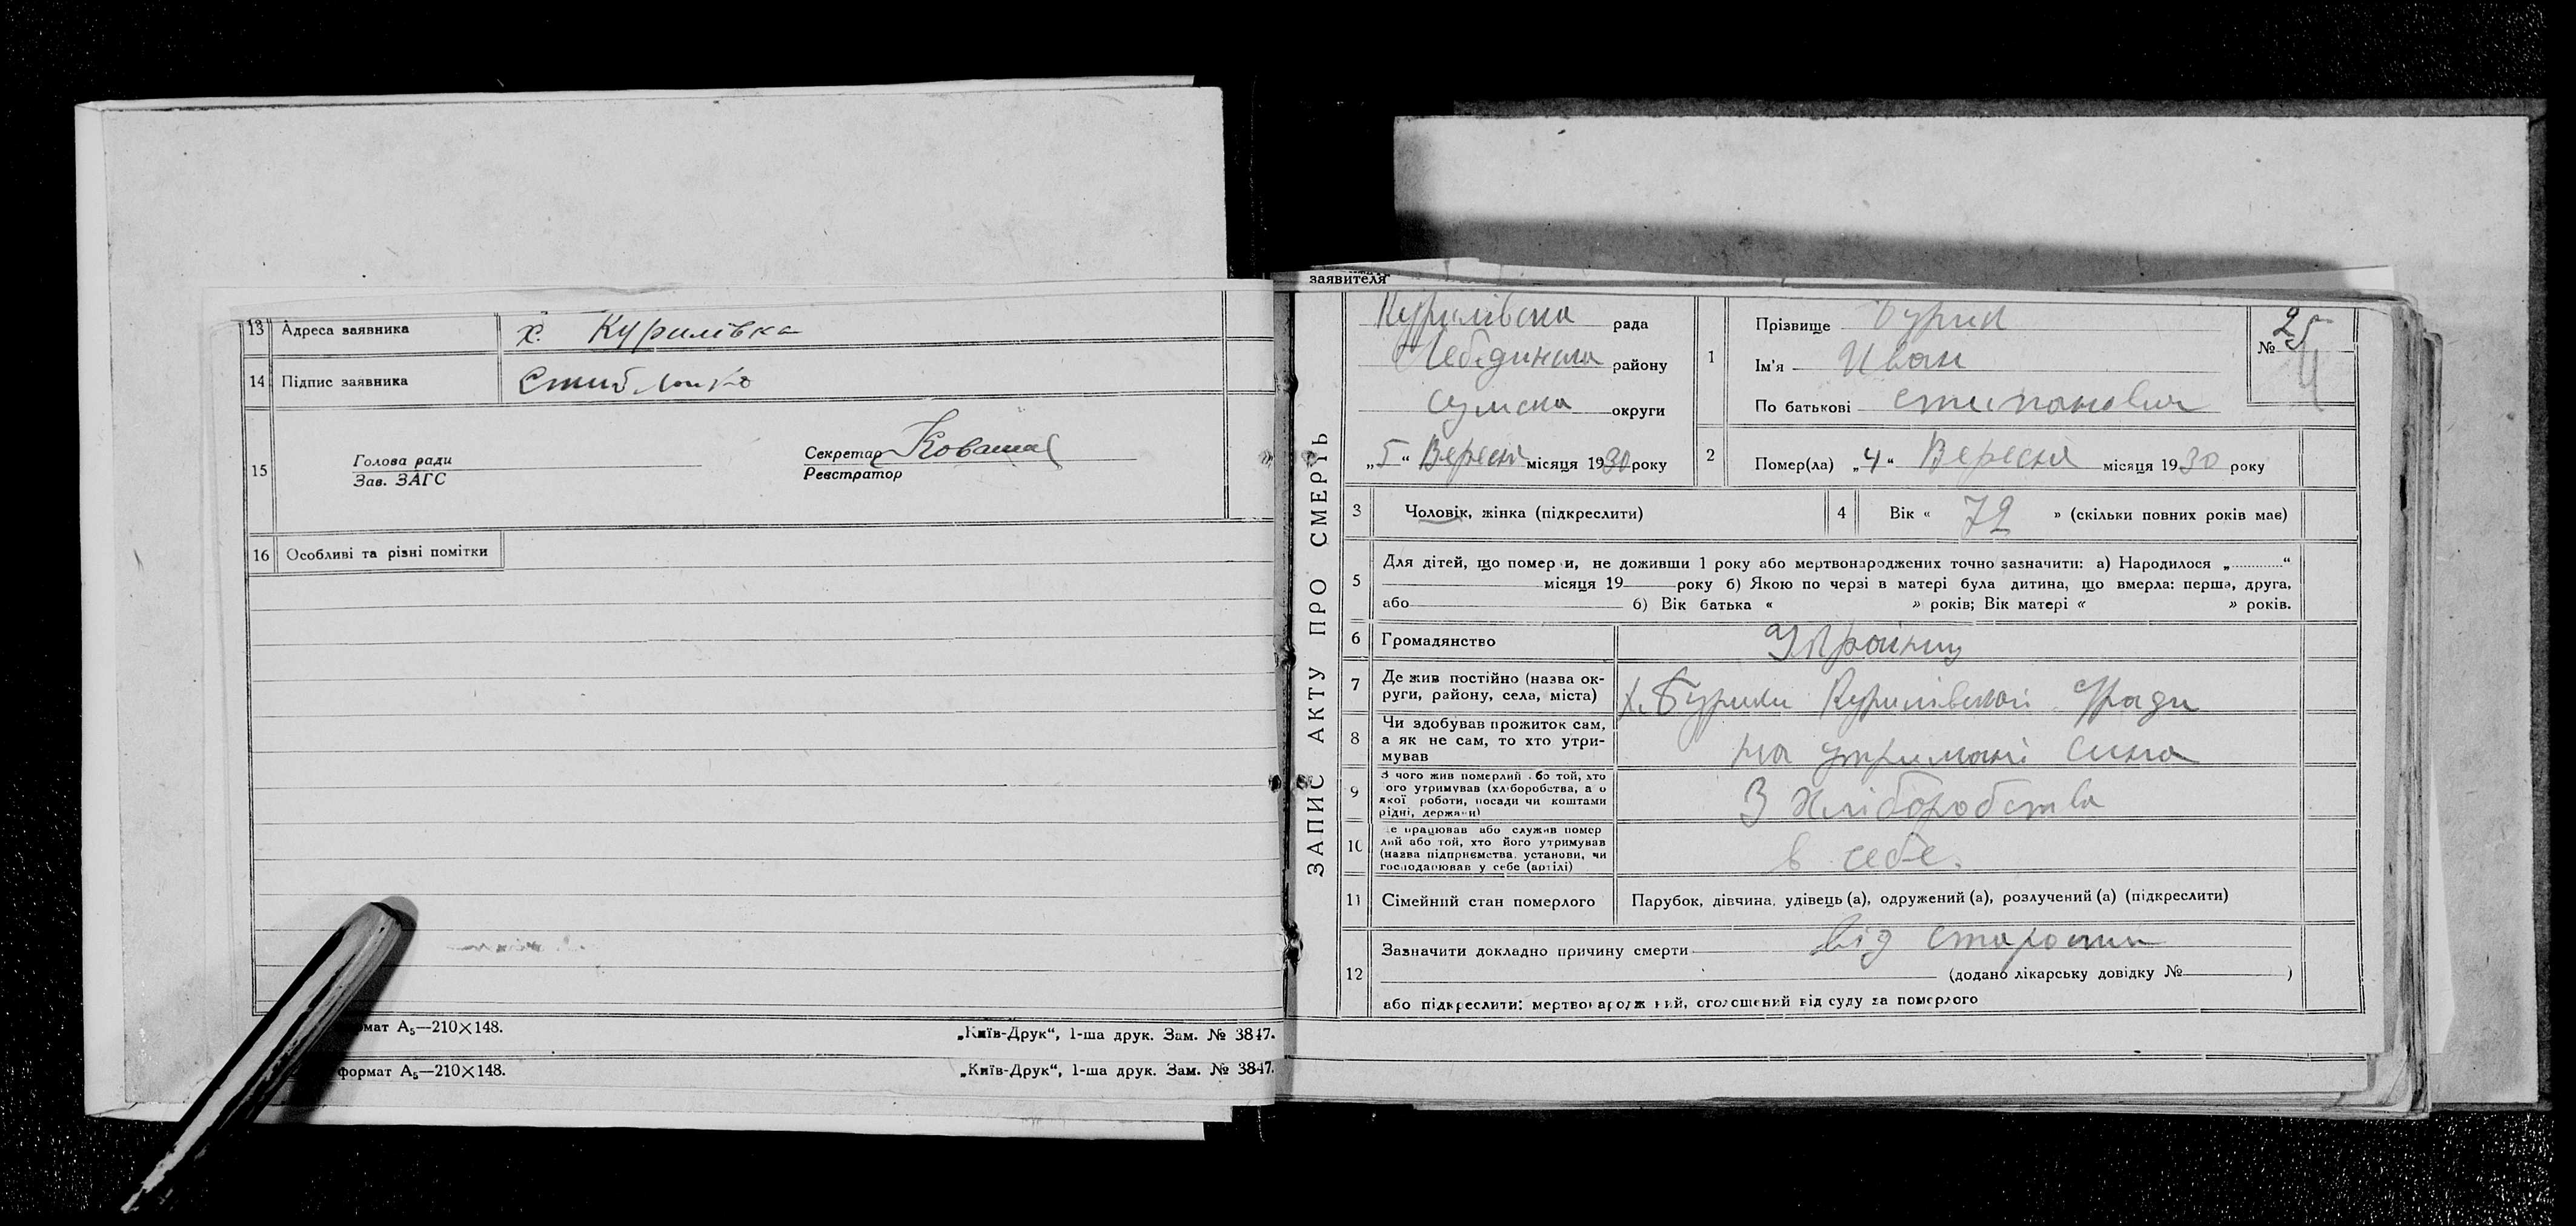 13 Адреса заявника х. Курилівка
14 Підпис заявника
15 Голова ради
Зав. ЗАГС
Секретар
Реєстратор
16 Особливі та різні помітки
формат А₅—210×148.
„Київ-Друк“, 1-ша друк. Зам. № 3847.
формат А₅—210×148.
„Київ-Друк“, 1-ша друк. Зам. № 3847.
заявителя
ЗАПИС АКТУ ПРО СМЕРТЬ
Курилівска рада
Лебединска району
Сумска округи
„5“ Вересня місяця 1930 року
1 Прізвище Бурик
Ім'я Иван
По батькові Степанович
№ 25
2 Помер(ла) „4“ Вересня місяця 1930 року
3 Чоловік, жінка (підкреслити)
4 Вік « 72 » (скільки повних років має)
5 Для дітей, що померли, не доживши 1 року або мертвонароджених точно зазначити: а) Народилося „ “
місяця 19 року б) Якою по черзі в матері була дитина, що вмерла: перша, друга,
або б) Вік батька « » років; Вік матері « » років.
6 Громадянство
7 Де жив постійно (назва ок-
руги, району, села, міста) х. Бурики Курилівскої С/ради
8 Чи здобував прожиток сам,
а як не сам, то хто утри-
мував на утримані сина
9 З чого жив померлий або той, хто
його утримував (хліборобства, а о
якої роботи, посади чи коштами
рідні, держави) З Хліборобства
10 Де працював або служив помер
лий або той, хто його утримував
(назва підприємства, установи, чи
господарював у себе (артілі) в себе.
11 Сімейний стан померлого Парубок, дівчина, удівець (а), одружений (а), розлучений (а) (підкреслити)
12 Зазначити докладно причину смерти від старости
(додано лікарську довідку № )
або підкреслити: мертвонароджений, оголошений від суду за померлого